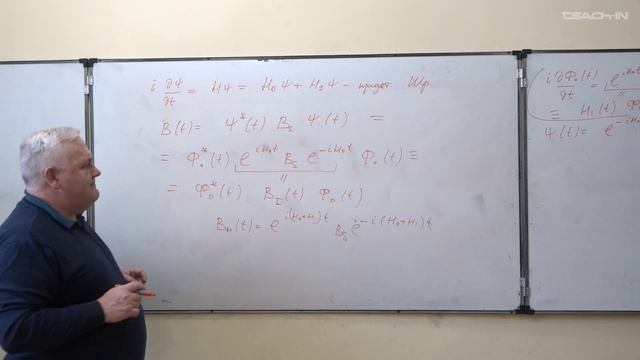 TEACH-IN
i ∂Ψ/∂t = HΨ = H₀Ψ + H₁Ψ –
B(t) = Ψ*(t) B_S Ψ(t) =
= Φ₀*(t) e^{iH₀t} B_S e^{-iH₀t} Φ₀(t) ≡
= Φ₀*(t) B_I(t) Φ₀(t)
B_H(t) = e^{i(H₀+H₁)t} B_S e^{-i(H₀+H₁)t}
i ∂Φ₀(t)/∂t = e^{iH₀t}
≡ H₁(t) Φ
Ψ(t) = e^{-iH₀